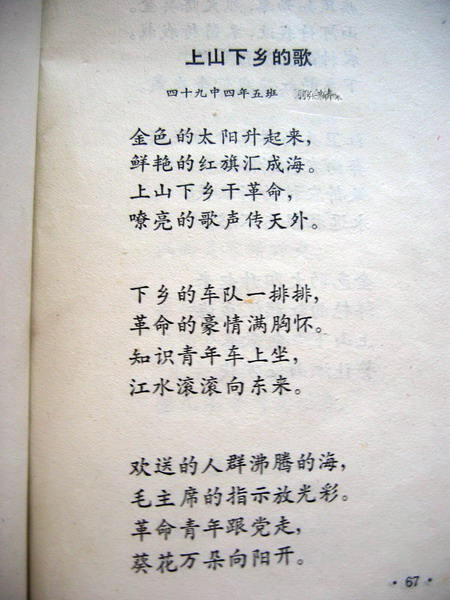 上山下乡的歌
四十九中四年五班
金色的太阳升起来，
鲜艳的红旗汇成海。
上山下乡干革命，
嘹亮的歌声传天外。
下乡的车队一排排，
革命的豪情满胸怀。
知识青年车上坐，
江水滚滚向东来。
欢送的人群沸腾的海，
毛主席的指示放光彩。
革命青年跟党走，
葵花万朵向阳开。
· 67 ·